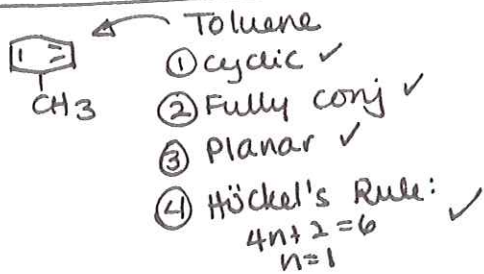 Toluene
① cyclic ✓
CH3
② Fully conj ✓
③ Planar ✓
④ Hückel's Rule: ✓
4n+2=6
n=1